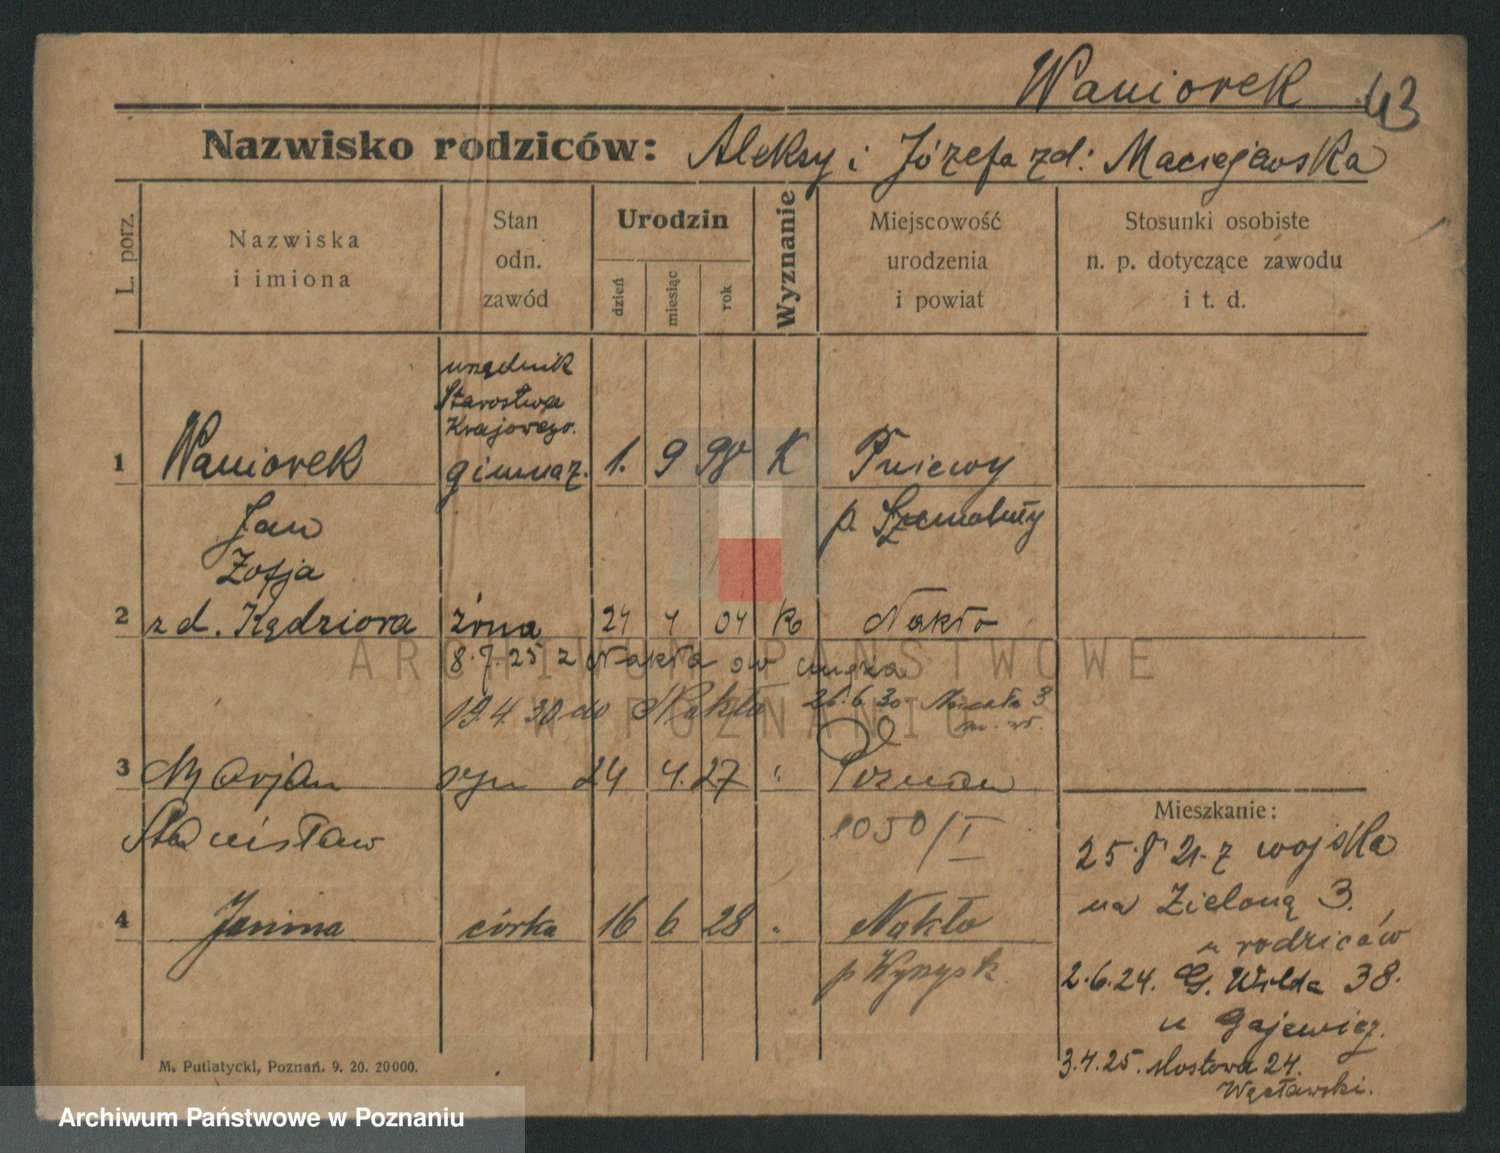 Waniorek 43
Nazwisko rodziców: Aleksy i Józefa zd: Maciejewska
L. porz.
Nazwiska
i imiona
Stan
odn.
zawód
Urodzin
dzień
miesiąc
rok
Wyznanie
Miejscowość
urodzenia
i powiat
Stosunki osobiste
n. p. dotyczące zawodu
i t. d.
urzędnik
Starostwa
Krajowego.
1 Waniorek gimnaz. 1. 9 98 K Pniewy
Jan p. Szamotuły
Zofja
2 z d. Kędziora żona 24 4 04 k Nakło
8.7.25 z Nakła męża
19.4.30 do Nakło 26.6.30
3 Marjan syn 24 4. 27 " Poznań
Stanisław 1050/I
4 Janina córka 16 6 28 " Nakło
p Wyrzysk
Mieszkanie:
25.8 21. z wojska
na Zieloną 3.
u rodziców
2.6.24. G. Wilda 38.
u Gajewicz.
3.4.25. Mostowa 24.
Węcławski.
M. Putiatycki, Poznań. 9. 20. 20000.
ARCHIWUM PAŃSTWOWE
W POZNANIU
Archiwum Państwowe w Poznaniu